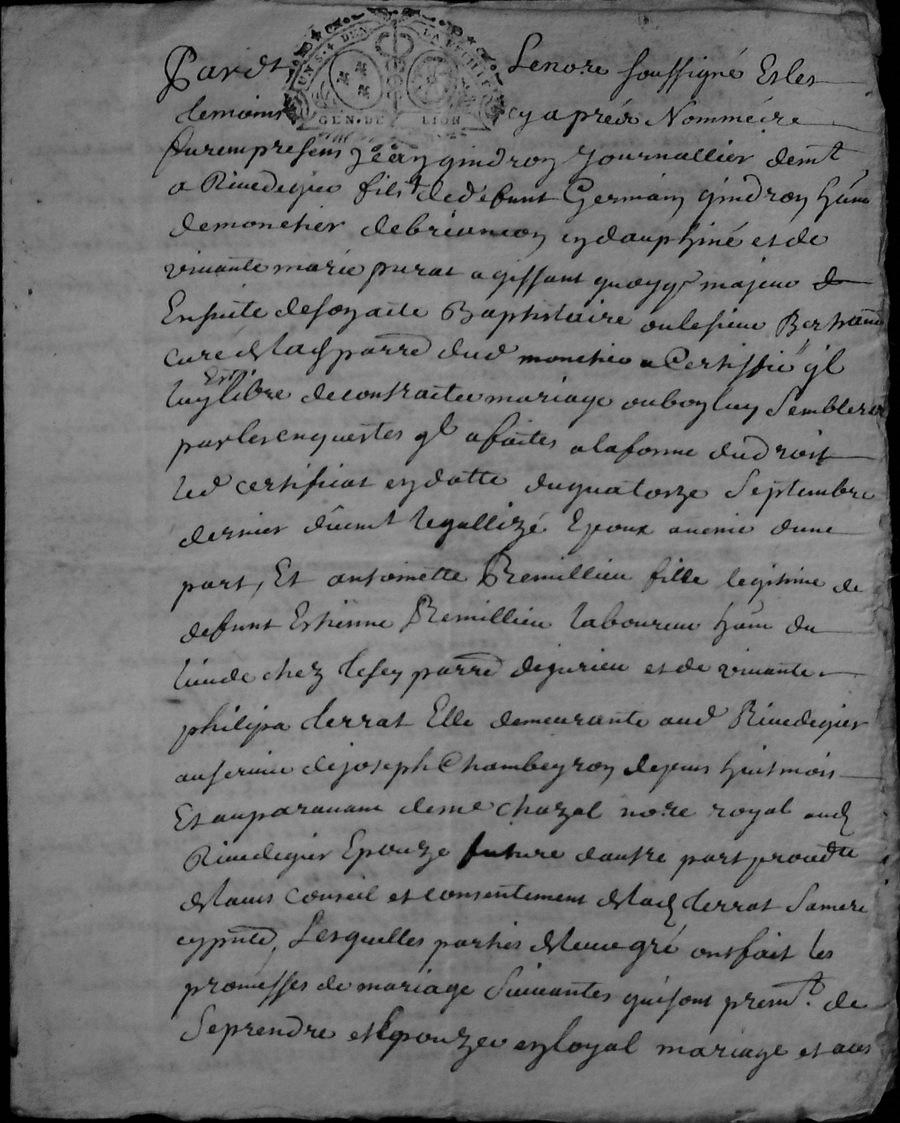 UN S. 4 DEN
GEN. DE LION
Pardt Lenore soussigné Et les
temoins cy aprés Nommé
furempresens Jean gindron Journallier demt
a Rivedegier fils de defunt Germain gindron
demonetier debriancon en dauphiné et de
vivante marie purat agissant quoyq majeur
Ensuite desonacte Baptistaire oulesieur Bertrand
curé parre dud monetier a Certiffié ql
Est
luy libre decontracter mariage oubonluy Semblera
parlesenquestes ql afaites alaforme dudroit
led certificat endatte duquatorze Septembre
dernier dûemt legallizé Epoux avenir dune
part, Et antoinette Remillieu fille legitime de
defunt Estienne Remillieu laboureur du
lieude chez parre dejurieu et de vivante
philipa terrat Elle demeurante aud Rivedegier
auservice dejoseph Chambeyron depuis huitmois
Et auparavant deme chazal nore royal aud
Rivedegier Epouze future dautre part
delavis Conseil et consentement delad terrat Samere
cypnte, Lesquelles parties deleurgré ontfait les
promesses de mariage Suivantes quisont premt. de
Seprendre et Epouzer enloyal mariage et